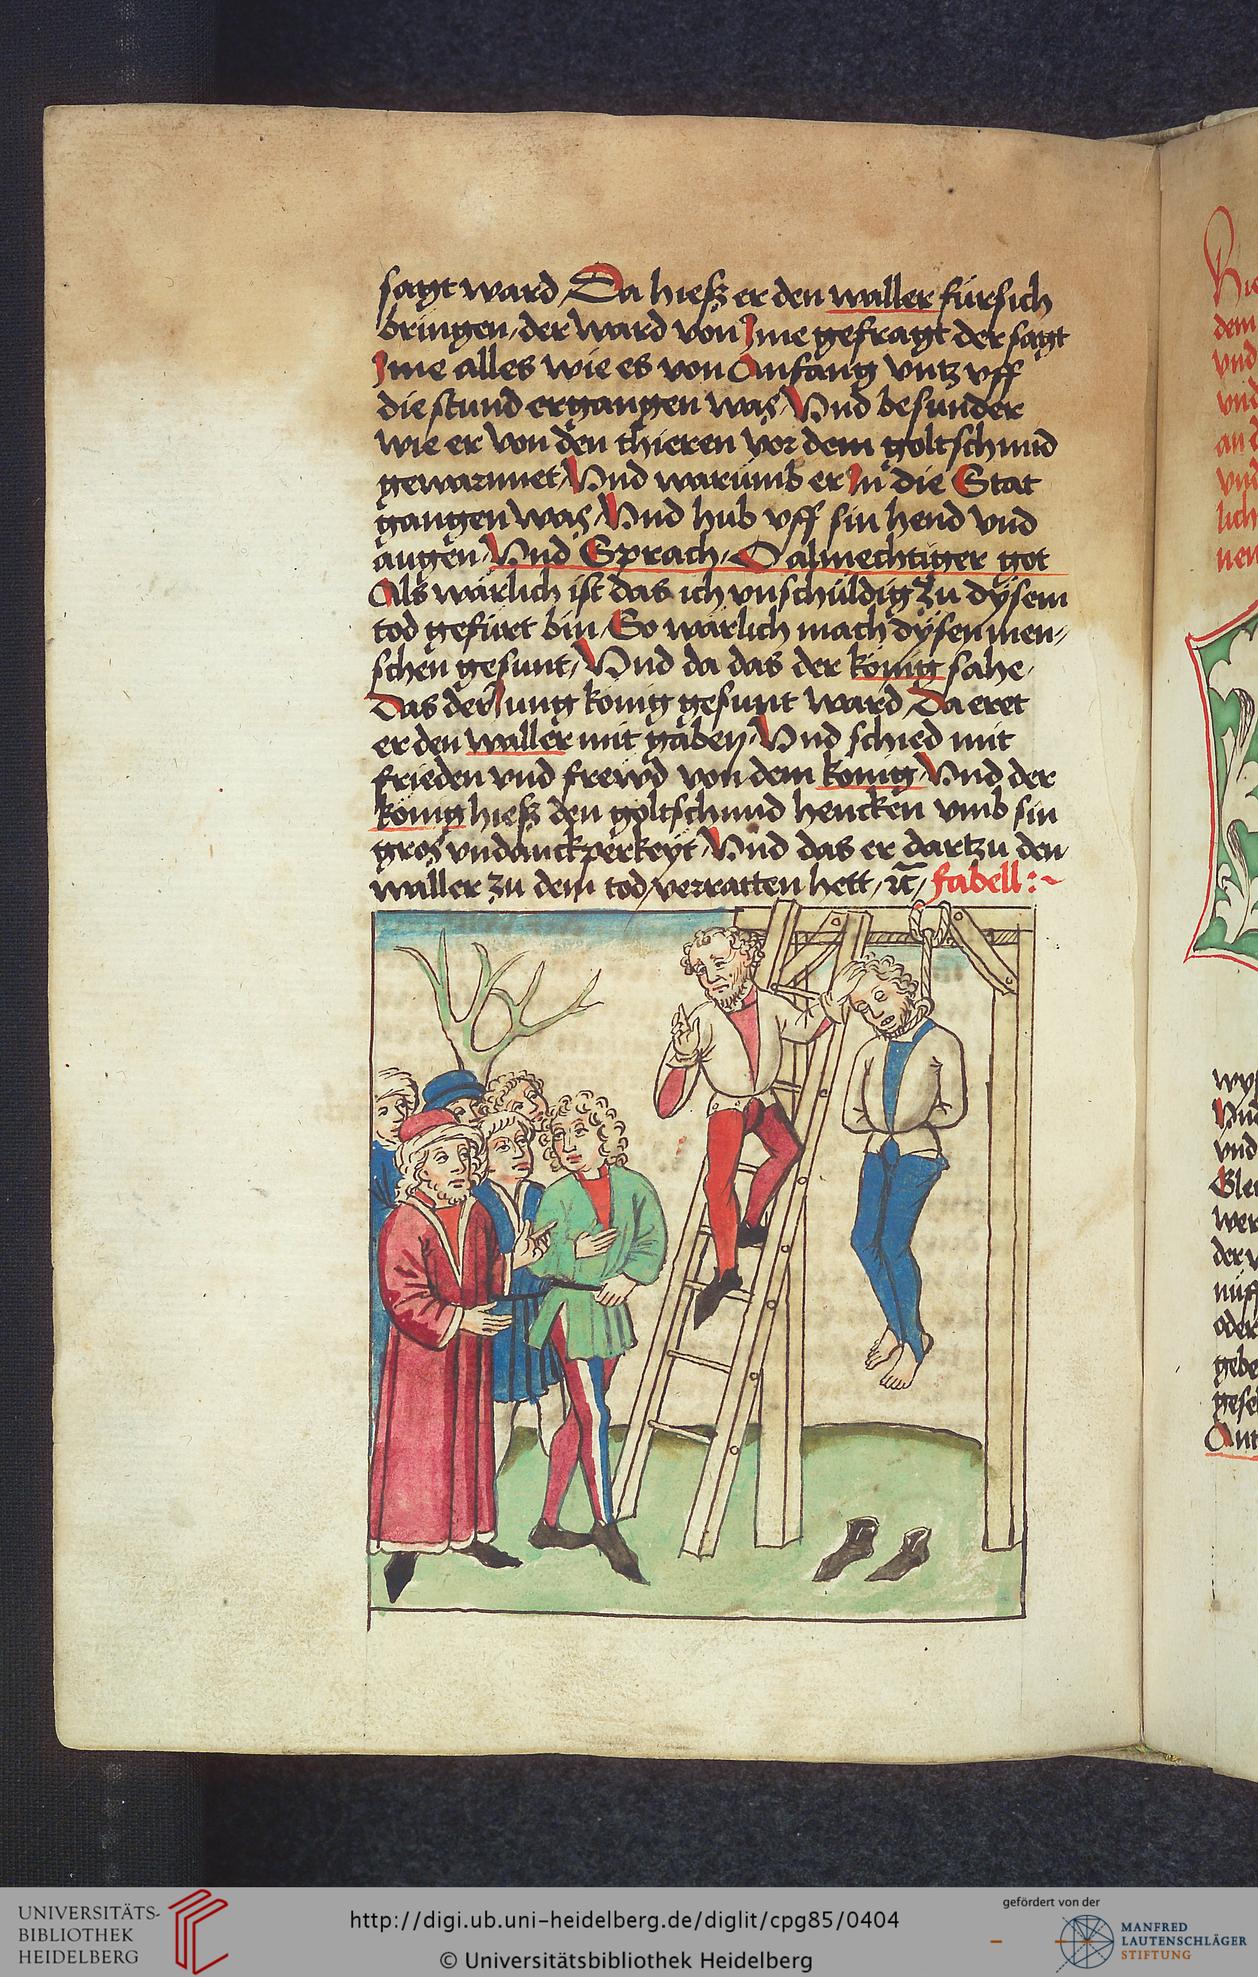 sagt ward Da hiesz er den waller fürsich
bringen der ward von Ime gefragt der sagt
Ime alles wie es von Anfang vntz vff
die stund ergangen was Vnd besunder
wie er von den thieren vor dem goltschmid
gewarnnet Vnd warumb er In die Stat
gangen was Vnd hub vff sin hend vnd
augen Vnd Sprach O almechtiger got
Als warlich ist das ich vnschuldig zu dysem
tod gefürt bin So warlich mach dysen men-
schen gesunt Vnd da das der konig sahe
Das der Jung konig gesunt ward Da eret
er den waller mit gaben Vnd schied mit
frieden vnd frewd von dem konig Vnd der
konig hiesz den goltschmid hencken vmb sin
gros vndanckperkeyt Vnd das er dartzu den
waller zu dem tod verratten hett fabell :~
dem
vnd
vnd
an d
vnd
lich
nen
Vnd
vnd
wer
der v
oder
gebe
gese
Ant
UNIVERSITÄTS-
BIBLIOTHEK
HEIDELBERG
http://digi.ub.uni-heidelberg.de/diglit/cpg85/0404
© Universitätsbibliothek Heidelberg
gefördert von der
MANFRED
LAUTENSCHLÄGER
STIFTUNG